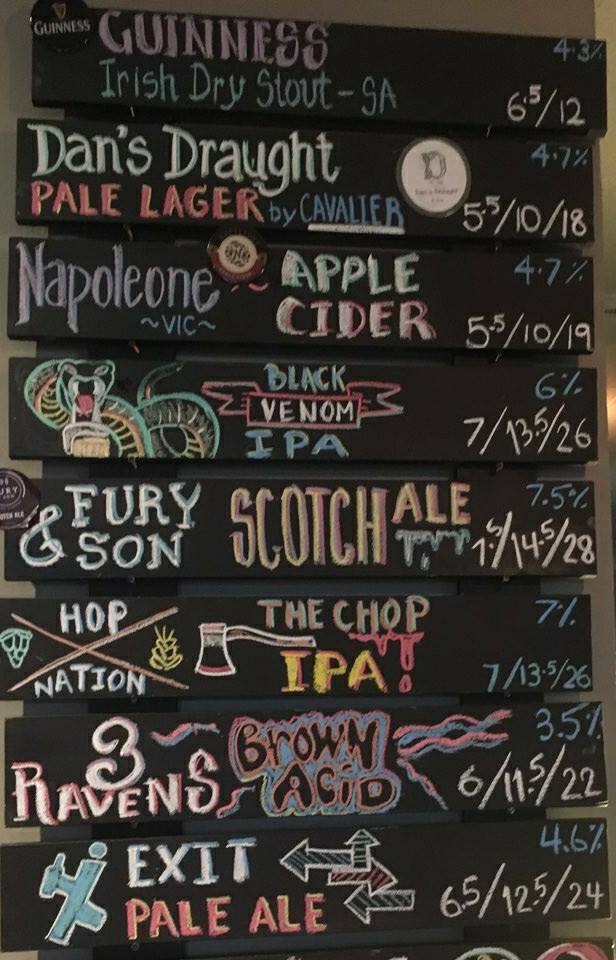 GUINNESS
GUINNESS
4.3%
Irish Dry Stout - SA
6.5/12
Dan's Draught
4.7%
PALE LAGER by CAVALIER
5.5/10/18
Napoleone
~VIC~
APPLE
CIDER
4.7%
5.5/10/19
BLACK
VENOM
IPA
6%
7/13.5/26
FURY
& SON
SCOTCH ALE
7.5%
7.5/14.5/28
HOP
NATION
THE CHOP
IPA!
7%
7/13.5/26
3
RAVENS
BROWN
ACID
3.5%
6/11.5/22
EXIT
PALE ALE
4.6%
6.5/12.5/24